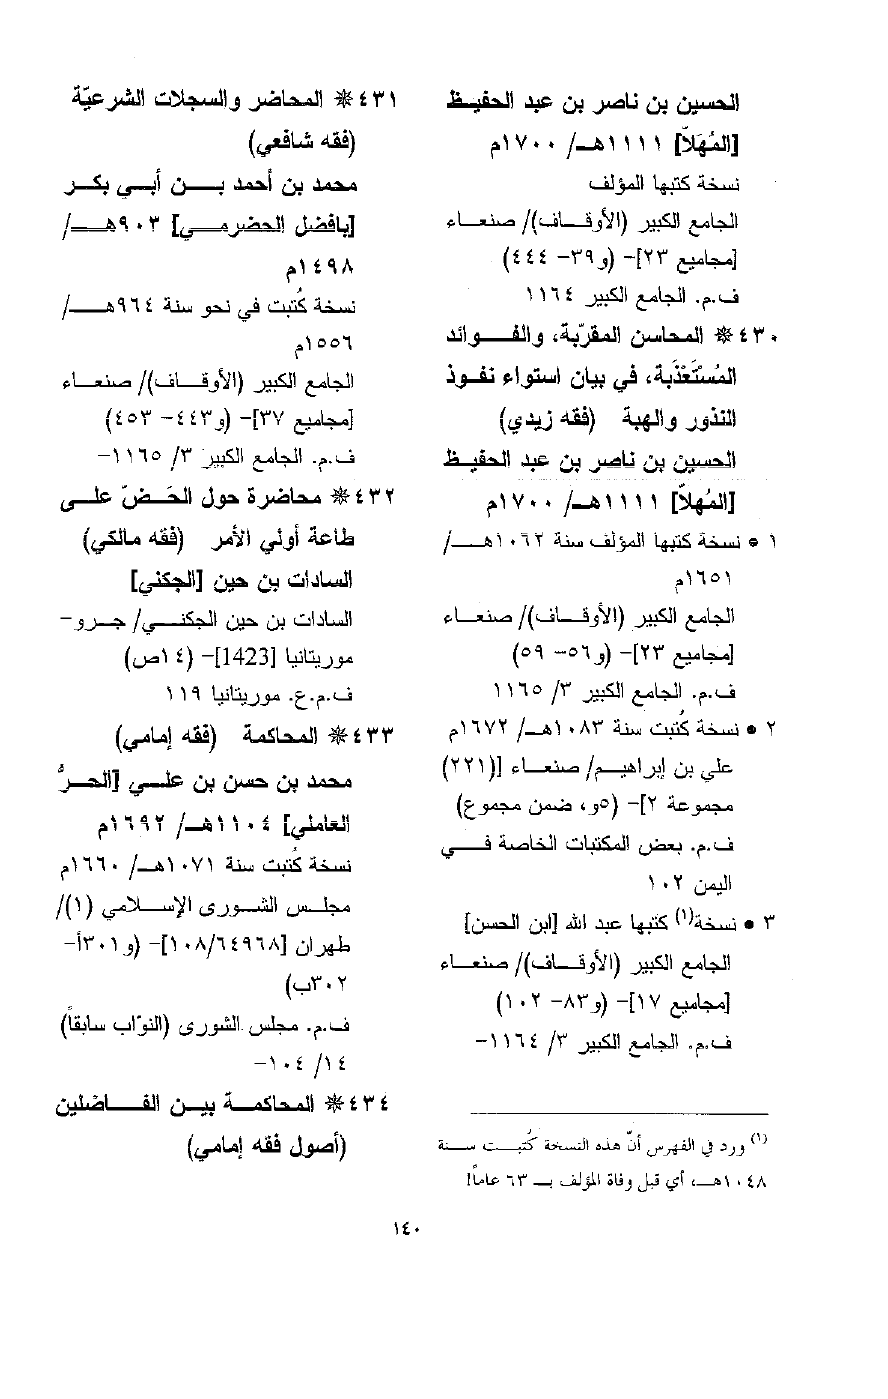 الحسين بن ناصر بن عبد الحفيظ
[المُهَلاّ] ١١١١هـ/ ١٧٠٠م
نسخة كتبها المؤلف
الجامع الكبير (الأوقاف)/ صنعاء
[مجاميع ٢٣]- (و٣٩- ٤٤٤)
ف.م. الجامع الكبير ١١٦٤
٤٣٠* المحاسن المقرّبة، والفوائد
المُستَعْذَبة، في بيان استواء نفوذ
النذور والهبة (فقه زيدي)
الحسين بن ناصر بن عبد الحفيظ
[المُهلاّ] ١١١١هـ/ ١٧٠٠م
١ • نسخة كتبها المؤلف سنة ١٠٦٢هـ/
١٦٥١م
الجامع الكبير (الأوقاف)/ صنعاء
[مجاميع ٢٣]- (و٥٦- ٥٩)
ف.م. الجامع الكبير ٣/ ١١٦٥
٢ • نسخة كُتبت سنة ١٠٨٣هـ/ ١٦٧٢م
علي بن إبراهيم/ صنعاء [(٢٢١)
مجموعة ٢]- (٥و، ضمن مجموع)
ف.م. بعض المكتبات الخاصة في
اليمن ١٠٢
٣ • نسخة(١) كتبها عبد الله [ابن الحسن]
الجامع الكبير (الأوقاف)/ صنعاء
[مجاميع ١٧]- (و٨٣- ١٠٢)
ف.م. الجامع الكبير ٣/ ١١٦٤-
(١) ورد في الفهرس أنّ هذه النسخة كُتبت سنة
١٠٤٨هـ، أي قبل وفاة المؤلف بـ ٦٣ عاماً!
٤٣١* المحاضر والسجلات الشرعيّة
(فقه شافعي)
محمد بن أحمد بن أبي بكر
[بافضل الحضرمي] ٩٠٣هـ/
١٤٩٨م
نسخة كُتبت في نحو سنة ٩٦٤هـ/
١٥٥٦م
الجامع الكبير (الأوقاف)/ صنعاء
[مجاميع ٣٧]- (و٤٤٣- ٤٥٣)
ف.م. الجامع الكبير ٣/ ١١٦٥-
٤٣٢* محاضرة حول الحَضّ على
طاعة أولي الأمر (فقه مالكي)
السادات بن حين [الجكني]
السادات بن حين الجكني/ جرو-
موريتانيا [1423]- (١٤ص)
ف.م.ع. موريتانيا ١١٩
٤٣٣* المحاكمة (فقه إمامي)
محمد بن حسن بن علي [الحرُّ
العاملي] ١١٠٤هـ/ ١٦٩٢م
نسخة كُتبت سنة ١٠٧١هـ/ ١٦٦٠م
مجلس الشورى الإسلامي (١)/
طهران [١٠٨/٦٤٩٦٨]- (و٣٠١أ-
٣٠٢ب)
ف.م. مجلس الشورى (النوّاب سابقاً)
١٤/ ١٠٤-
٤٣٤* المحاكمة بين الفاضلين
(أصول فقه إمامي)
١٤٠